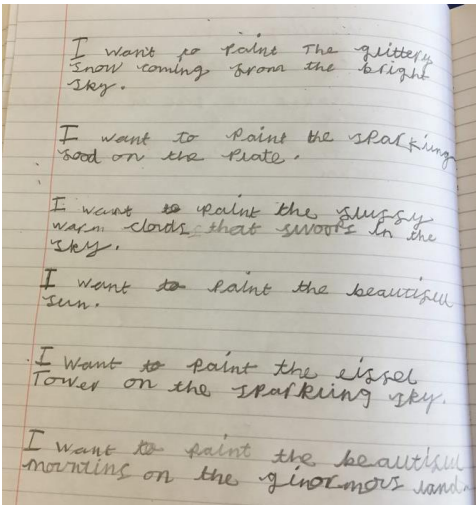 I want to paint The glittery
snow coming from the bright
sky.
I want to paint the sparkling
food on the plate.
I want to paint the fluffy
warm clouds that swoops in the
sky.
I want to paint the beautiful
sun.
I want to paint the eiffel
Tower on the sparkling sky.
I want to paint the beautiful
mountins on the ginormous land